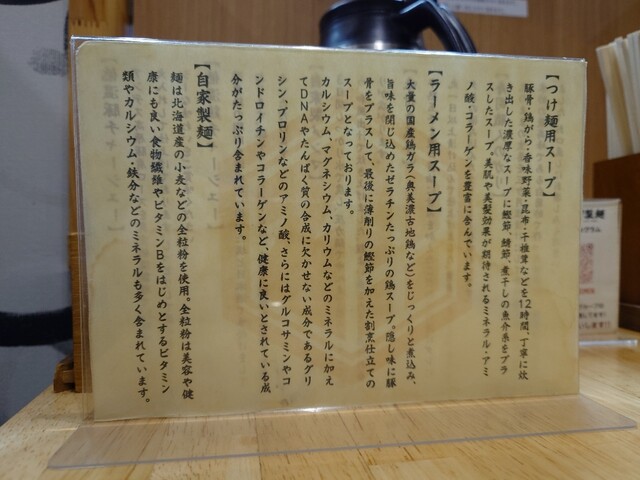 【つけ麺用スープ】
豚骨・鶏がら・香味野菜・昆布・干椎茸などを12時間、丁寧に炊
き出した濃厚なスープに鰹節、鯖節、煮干しの魚介系をプラ
スしたスープ。美肌や美髪効果が期待されるミネラル・アミ
ノ酸・コラーゲンを豊富に含んでいます。
【ラーメン用スープ】
大量の国産鶏ガラ(奥美濃古地鶏など)をじっくりと煮込み、
旨味を閉じ込めたゼラチンたっぷりの鶏スープ。隠し味に豚
骨をプラスして、最後に薄削りの鰹節を加えた割烹仕立ての
スープとなっております。
カルシウム、マグネシウム、カリウムなどのミネラルに加え
てDNAやたんぱく質の合成に欠かせない成分であるグリ
シン、プロリンなどのアミノ酸、さらにはグルコサミンやコ
ンドロイチンやコラーゲンなど、健康に良いとされている成
分がたっぷり含まれています。
【自家製麺】
麺は北海道産の小麦などの全粒粉を使用。全粒粉は美容や健
康にも良い食物繊維やビタミンBをはじめとするビタミン
類やカルシウム・鉄分などのミネラルも多く含まれています。
製麺